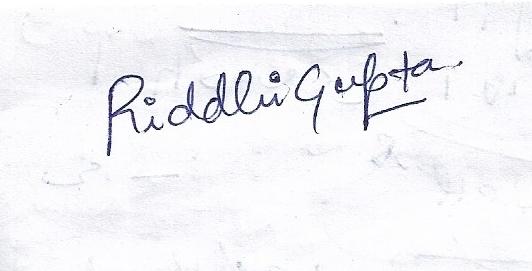 Riddhi Gupta